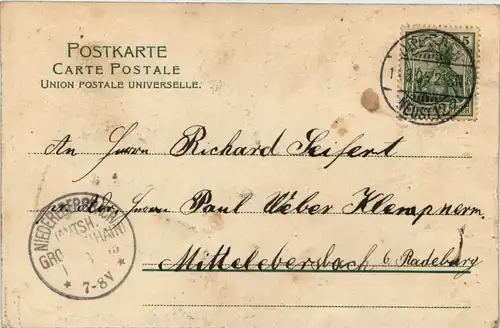 POSTKARTE
CARTE POSTALE
UNION POSTALE UNIVERSELLE.
5
NEUST.
An Herrn Richard Seifert
Herrn Paul Weber Klempnerm.
Mittelebersbach b. Radeburg
NIEDEREBERSBACH
AMTSH.
GROSSENHAIN
* 7-8V *